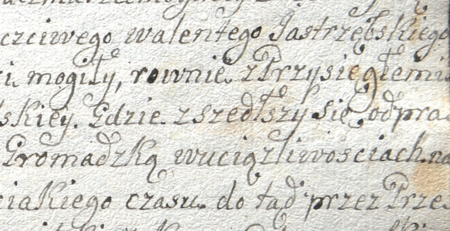 czciwego walentego Jastrzębskiego
i mogiły, rownie z Przysięgłemi
skiey. Gdzie zszedłszy się odpra
Gromadzką wuciążliwosciach na
ciakiego czasu do tąd przez Prze